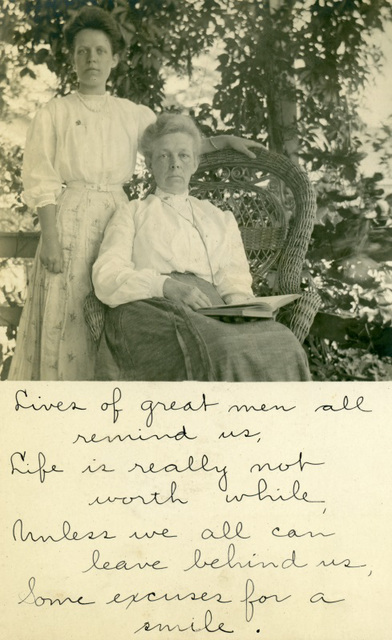 Lives of great men all
remind us,
Life is really not
worth while,
Unless we all can
leave behind us,
Some excuses for a
smile.